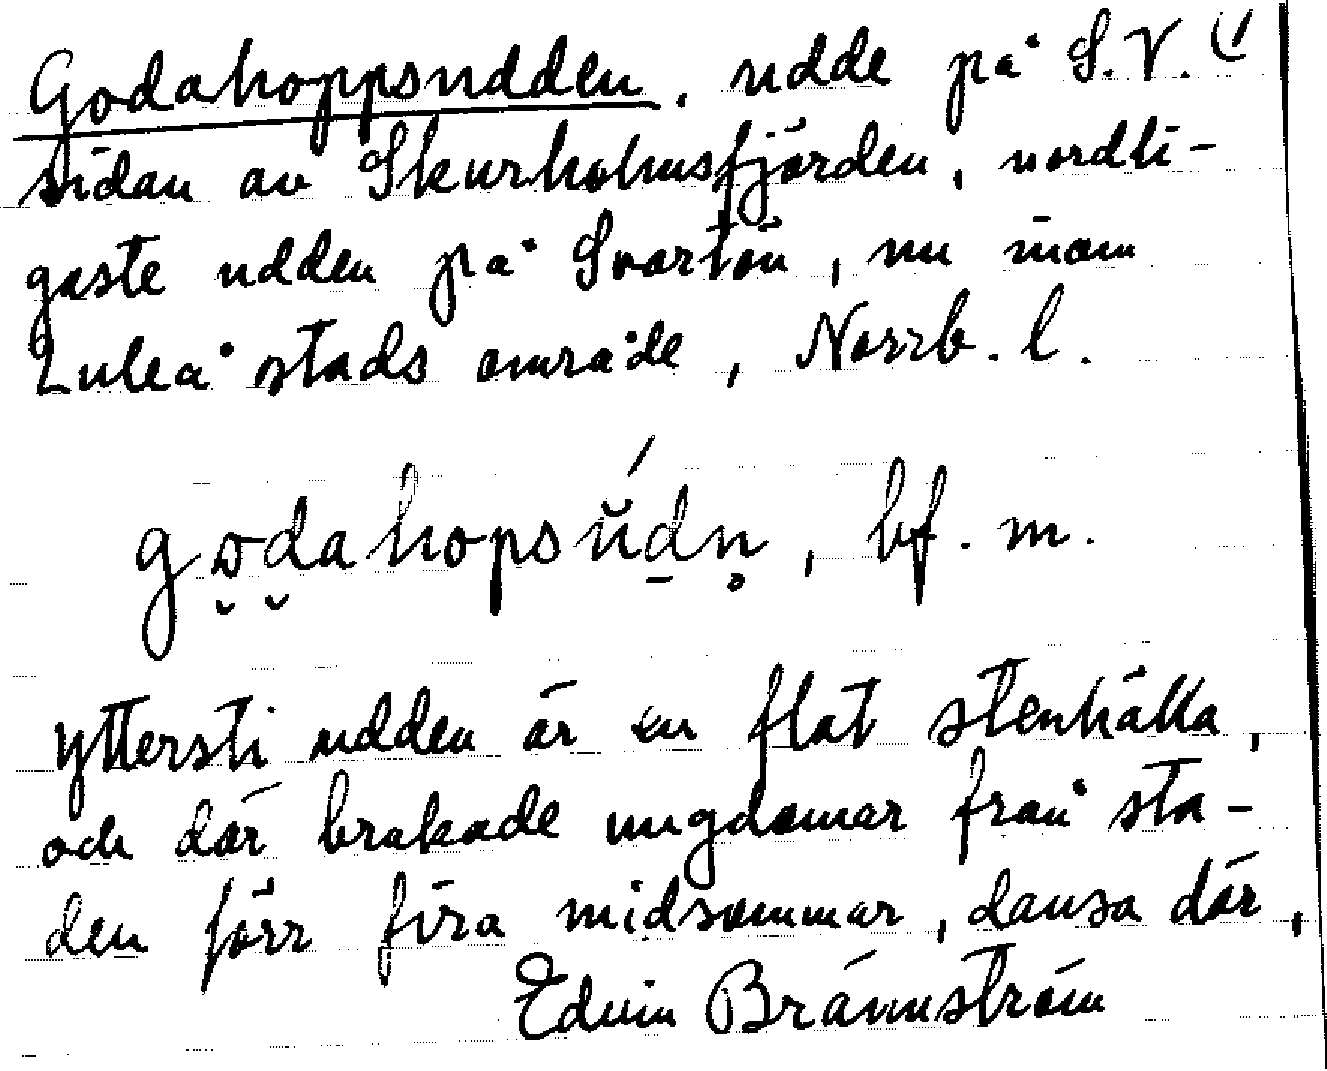 Godahoppsudden, udde på S.V. (1
sidan av Skurholmsfjärden, nordli-
gaste udden på Svartön, nu inom
Luleå stads område, Norrb. l.
go̮d̮ahopsŭ́d̠n̥, bf. m.
Ytterst i udden är en flat stenhälla,
och där brukade ungdomar från sta-
den förr fira midsommar, dansa där,
Edvin Brännström